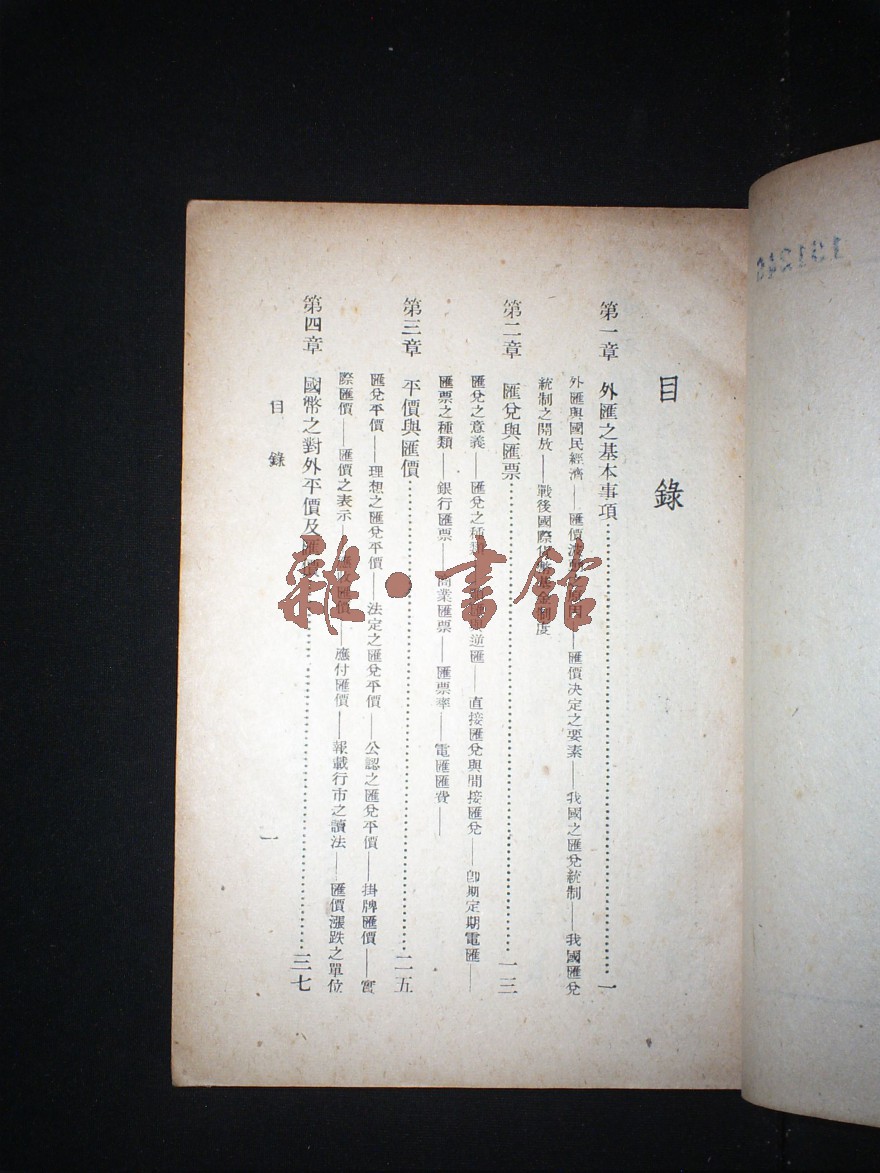 目錄
第一章 外匯之基本事項……一
外匯與國民經濟——匯價——匯價決定之要素——我國之匯兌統制——我國匯兌
統制之開放——戰後國際基金制度
第二章 匯兌與匯票……一三
匯兌之意義——匯兌之種類——逆匯——直接匯兌與間接匯兌——卽期定期電匯——
匯票之種類——銀行匯票——商業匯票——匯票率——電匯匯費——
第三章 平價與匯價……二五
匯兌平價——理想之匯兌平價——法定之匯兌平價——公認之匯兌平價——掛牌匯價——實
際匯價——匯價之表示——應收匯價——應付匯價——報載行市之讀法——匯價漲跌之單位
第四章 國幣之對外平價及匯價……三七
目錄
一
雜·書館